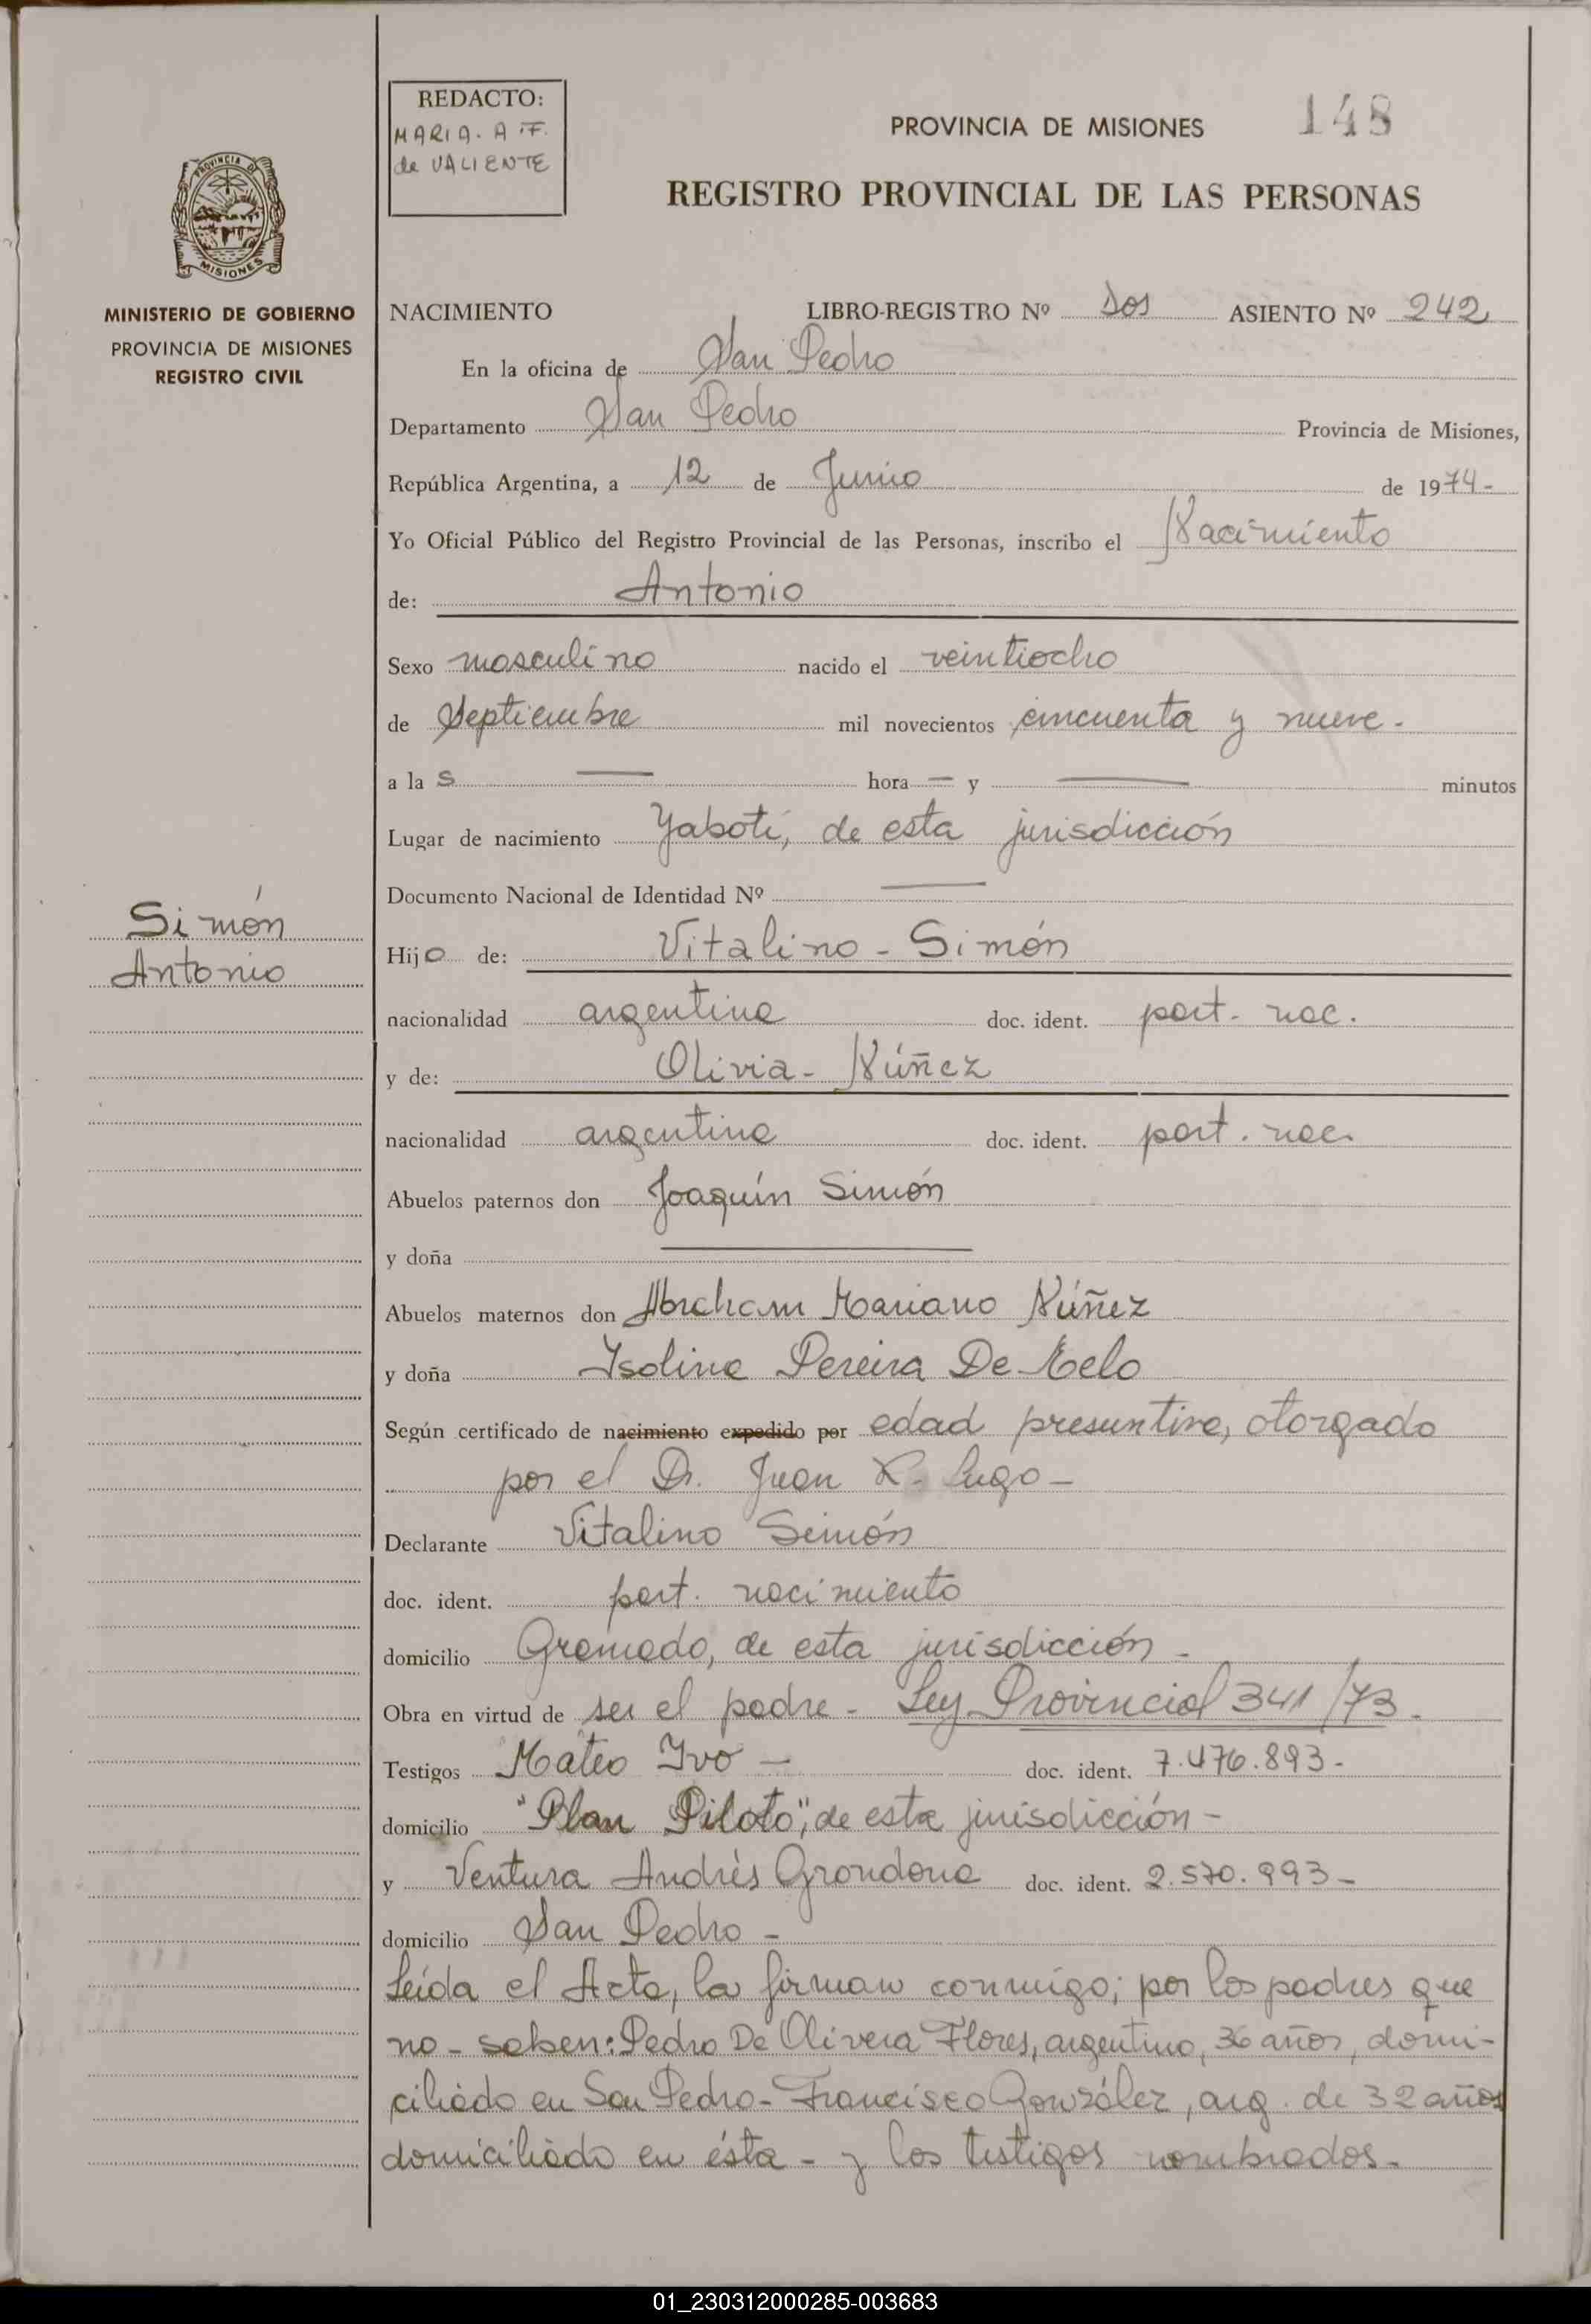 REDACTO:
MARIA. A. F.
de VALIENTE
PROVINCIA DE MISIONES
148
REGISTRO PROVINCIAL DE LAS PERSONAS
PROVINCIA DE
MISIONES
MINISTERIO DE GOBIERNO
PROVINCIA DE MISIONES
REGISTRO CIVIL
NACIMIENTO LIBRO-REGISTRO Nº Dos ASIENTO Nº 242
En la oficina de San Pedro
Departamento San Pedro Provincia de Misiones,
República Argentina, a 12 de Junio de 1974-
Yo Oficial Público del Registro Provincial de las Personas, inscribo el Nacimiento
de: Antonio
Sexo masculino nacido el veintiocho
de Septiembre mil novecientos cincuenta y nueve.
a la s — hora — y — minutos
Lugar de nacimiento Yabotí, de esta jurisdicción
Documento Nacional de Identidad Nº —
Simón
Antonio
Hijo de: Vitalino - Simón
nacionalidad argentina doc. ident. part. nac.
y de: Olivia - Núñez
nacionalidad argentina doc. ident. part. nac.
Abuelos paternos don Joaquín Simón
y doña —
Abuelos maternos don Abraham Mariano Núñez
y doña Isolina Pereira De Melo
Según certificado de nacimiento expedido por edad presuntiva, otorgado
por el Dr. Juan R. Lugo -
Declarante Vitalino Simón
doc. ident. part. nacimiento
domicilio Gramado, de esta jurisdicción -
Obra en virtud de ser el padre - Ley Provincial 341/73.
Testigos Mateo Ivo - doc. ident. 7.476.893-
domicilio "Plan Piloto", de esta jurisdicción -
y Ventura Andrés Grondona doc. ident. 2.570.993-
domicilio San Pedro -
Leída el Acta, la firman conmigo; por los padres que
no - saben: Pedro De Olivera Flores, argentino, 36 años, domi-
ciliado en San Pedro - Francisco González, arg. de 32 años
domiciliado en ésta - y los testigos nombrados.
01_230312000285-003683